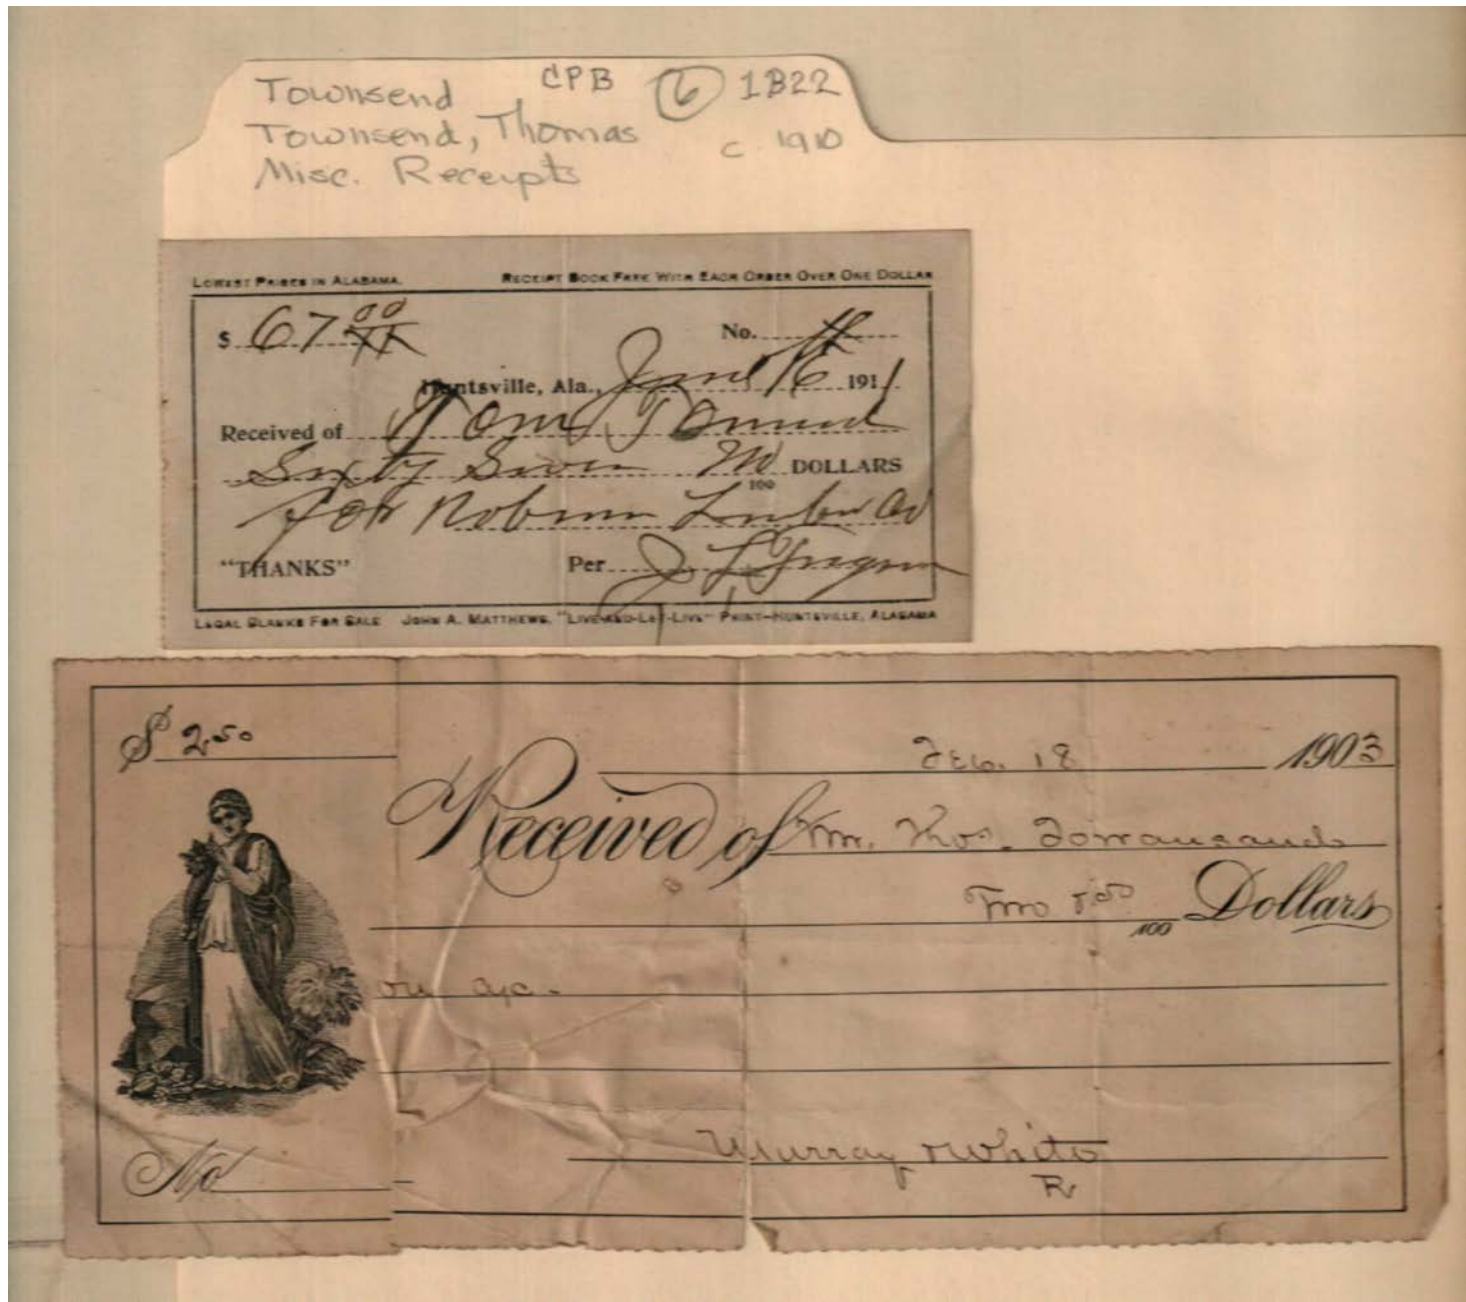 Townsend CPB 6 1B22
Townsend, Thomas c 1910
Misc. Receipts
LOWEST PRICES IN ALABAMA. RECEIPT BOOK FREE WITH EACH ORDER OVER ONE DOLLAR
$ 67 00
No.
Huntsville, Ala., 16 1911
Received of Tom
Sixty Seven DOLLARS
100
for Lumber Co
"THANKS" Per J L
LEGAL BLANKS FOR SALE JOHN A. MATTHEWS, "LIVE-AND-LET-LIVE" PRINT—HUNTSVILLE, ALABAMA
$ 2 50
Feb. 18 1903
Received of Mr. Thos. Townsand
Two & 50/100 Dollars
on a/c.
Murray & White
No R